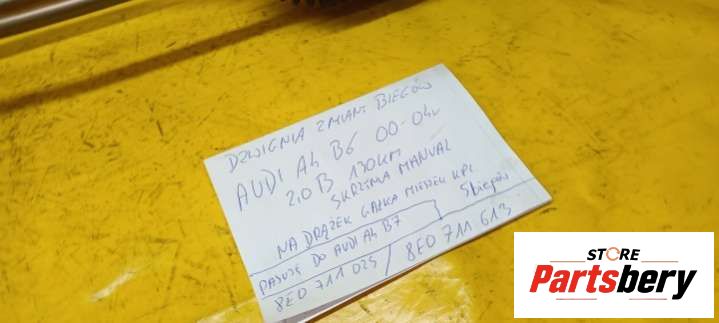 DZWIGNIA ZMIANY BIEGÓW
AUDI A4 B6 00-04r
2,0 B 130KM
SKRZYNIA MANUAL
NA DRĄŻEK GAŁKA MIESZEK KPL
5biegów
PASUJE DO AUDI A4 B7
8E0 711 025 / 8E0 711 613
STORE
Partsbery